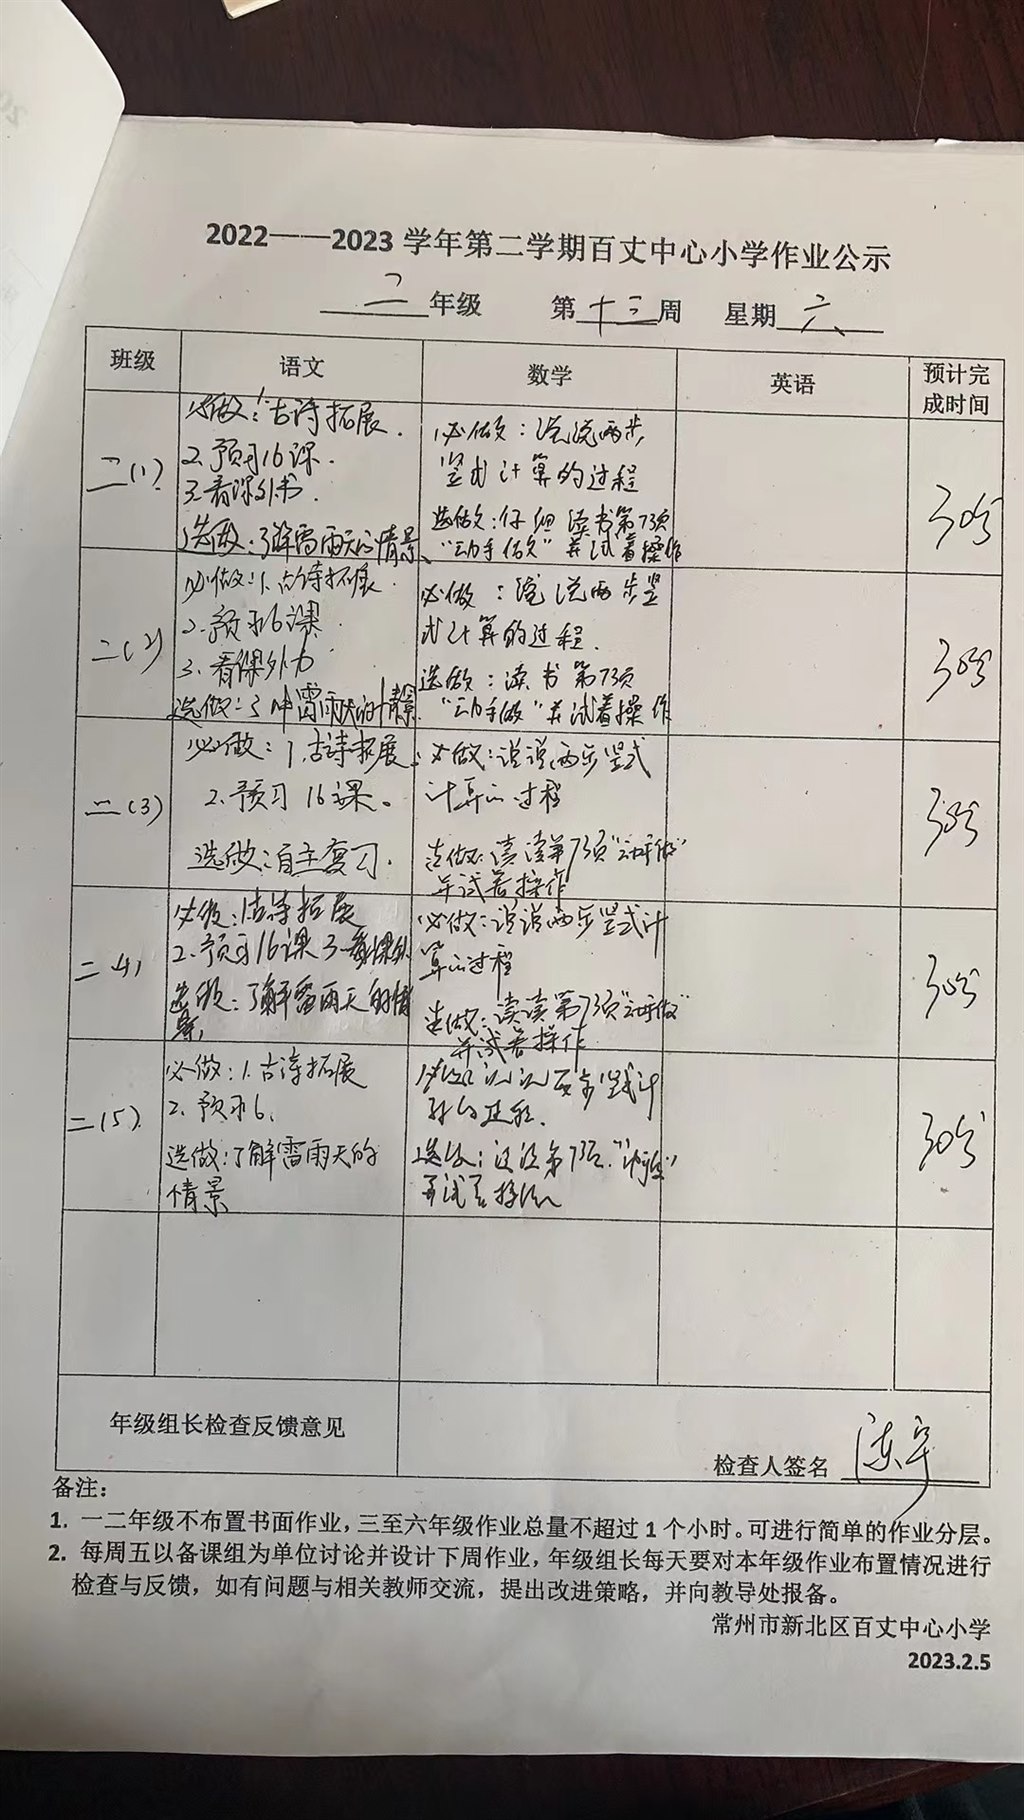 2022——2023 学年第二学期百丈中心小学作业公示
二年级 第十三周 星期六
班级 语文 数学 英语 预计完成时间
二(1)
必做:1.古诗拓展.
2.预习16课.
3.看课外书.
选做:了解雷雨天的情景
必做:说说两步
竖式计算的过程
选做:仔细读书第73页
“动手做”并试着操作
30分
二(2)
必做:1.古诗拓展.
2.预习16课.
3.看课外书
选做:了解雷雨天的情景
必做:说说两步竖
式计算的过程.
选做:读书第73页
“动手做”并试着操作
30分
二(3)
必做:1.古诗拓展.
2.预习16课。
选做:自主复习.
必做:说说两步竖式
计算的过程
选做:读读第73页“动手做”
并试着操作
30分
二(4)
必做:1古诗拓展
2.预习16课 3.看课外
选做:了解雷雨天的情
景
必做:说说两步竖式计
算的过程
选做:读读第73页“动手做”
并试着操作
30分
二(5)
必做:1.古诗拓展
2.预习16.
选做:了解雷雨天的
情景
必做:说说两步竖式计
算的过程.
选做:读读第73页.“动手做”
并试着操作
30分
年级组长检查反馈意见
检查人签名
备注:
1. 一二年级不布置书面作业,三至六年级作业总量不超过1个小时。可进行简单的作业分层。
2. 每周五以备课组为单位讨论并设计下周作业,年级组长每天要对本年级作业布置情况进行
检查与反馈,如有问题与相关教师交流,提出改进策略,并向教导处报备。
常州市新北区百丈中心小学
2023.2.5